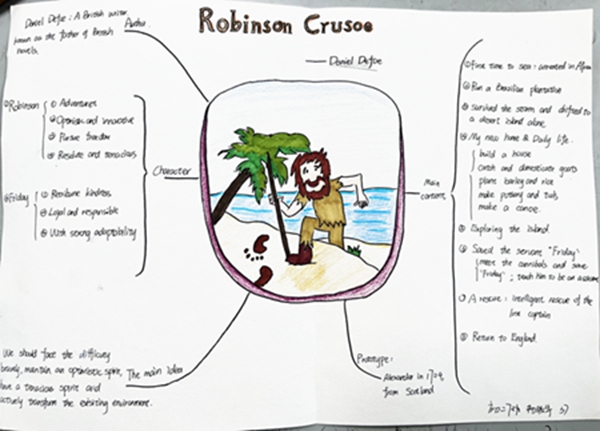 Robinson Crusoe
Daniel Defoe
Daniel Defoe: A British writer
known as the father of British
novels.
Author
Character
①Robinson
① Adventures
② Optimism and innovative
③ Pursue freedom
④ Resolute and tenacious
②Friday
① kindness
② Loyal and responsible
③ With strong adaptability
The main idea
We should face the difficulty
bravely, maintain an optimistic spirit,
have a tenacious spirit and
actively transform the existing environment.
Prototype:
Alexander in 1704,
from Scotland
Main
content
①First time to sea: in
②Run a Brazilian plantation
③ Survived the storm and drifted to
a desert island alone.
④ My new home & Daily life.
build a house
catch and domesticate goats
plant barley and rice
make pottery and
make a canoe.
⑤ Exploring the island
⑥ Saved the servant "Friday"
meet the cannibals and save
"Friday"; teach him to be an
⑦ A rescue: intelligent rescue of the
captain
⑧ Return to England.